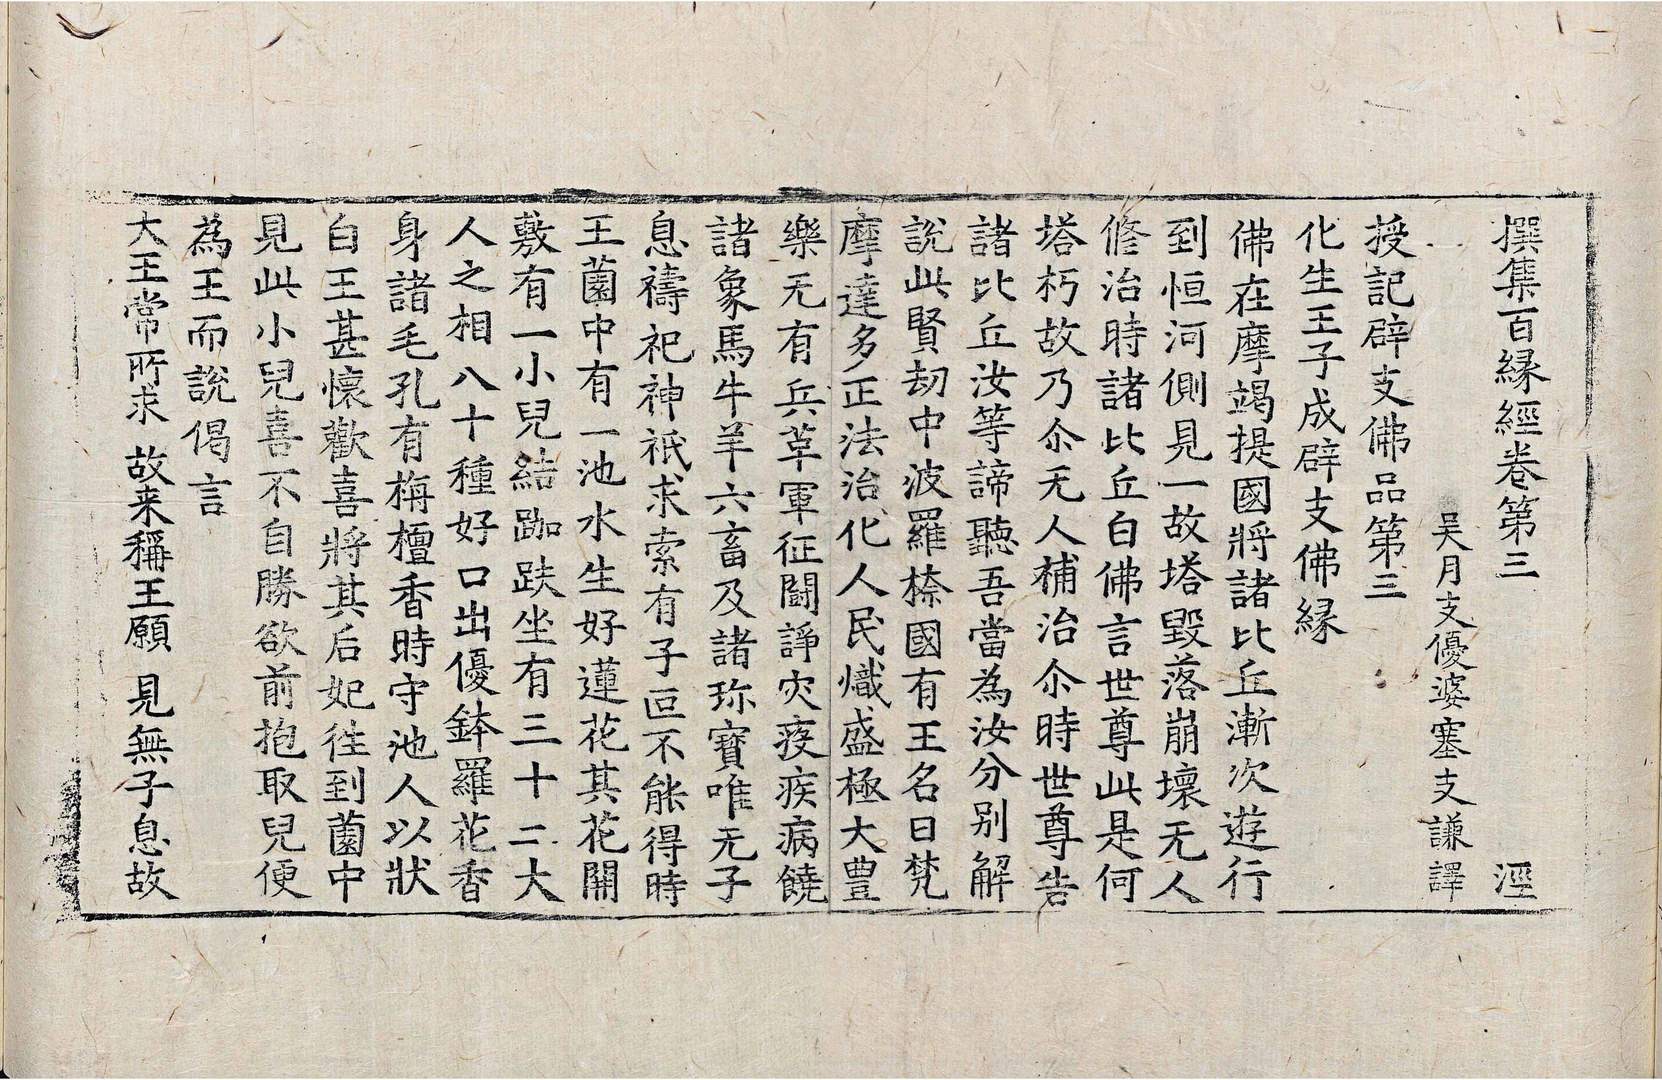 撰集百縁經卷第三 涇
吴月支優婆塞支謙譯
授記辟支佛品第三
化生王子成辟支佛縁
佛在摩竭提國將諸比丘漸次遊行
到恒河側見一故塔毀落崩壞无人
脩治時諸比丘白佛言世尊此是何
塔朽故乃尒无人補治尒時世尊告
諸比丘汝等諦聽吾當為汝分別解
說此賢劫中波羅㮈國有王名曰梵
摩達多正法治化人民熾盛極大豊
樂无有兵革軍征鬪諍灾疫疾病饒
諸象馬牛羊六畜及諸珎寶唯无子
息禱祀神祇求索有子叵不能得時
王薗中有一池水生好蓮花其花開
敷有一小兒結跏趺坐有三十二大
人之相八十種好口出優鉢羅花香
身諸毛孔有栴檀香時守池人以狀
白王甚懷歡喜將其后妃往到薗中
見此小兒喜不自勝欲前抱取兒便
為王而說偈言
大王常所求 故来稱王願 見無子息故